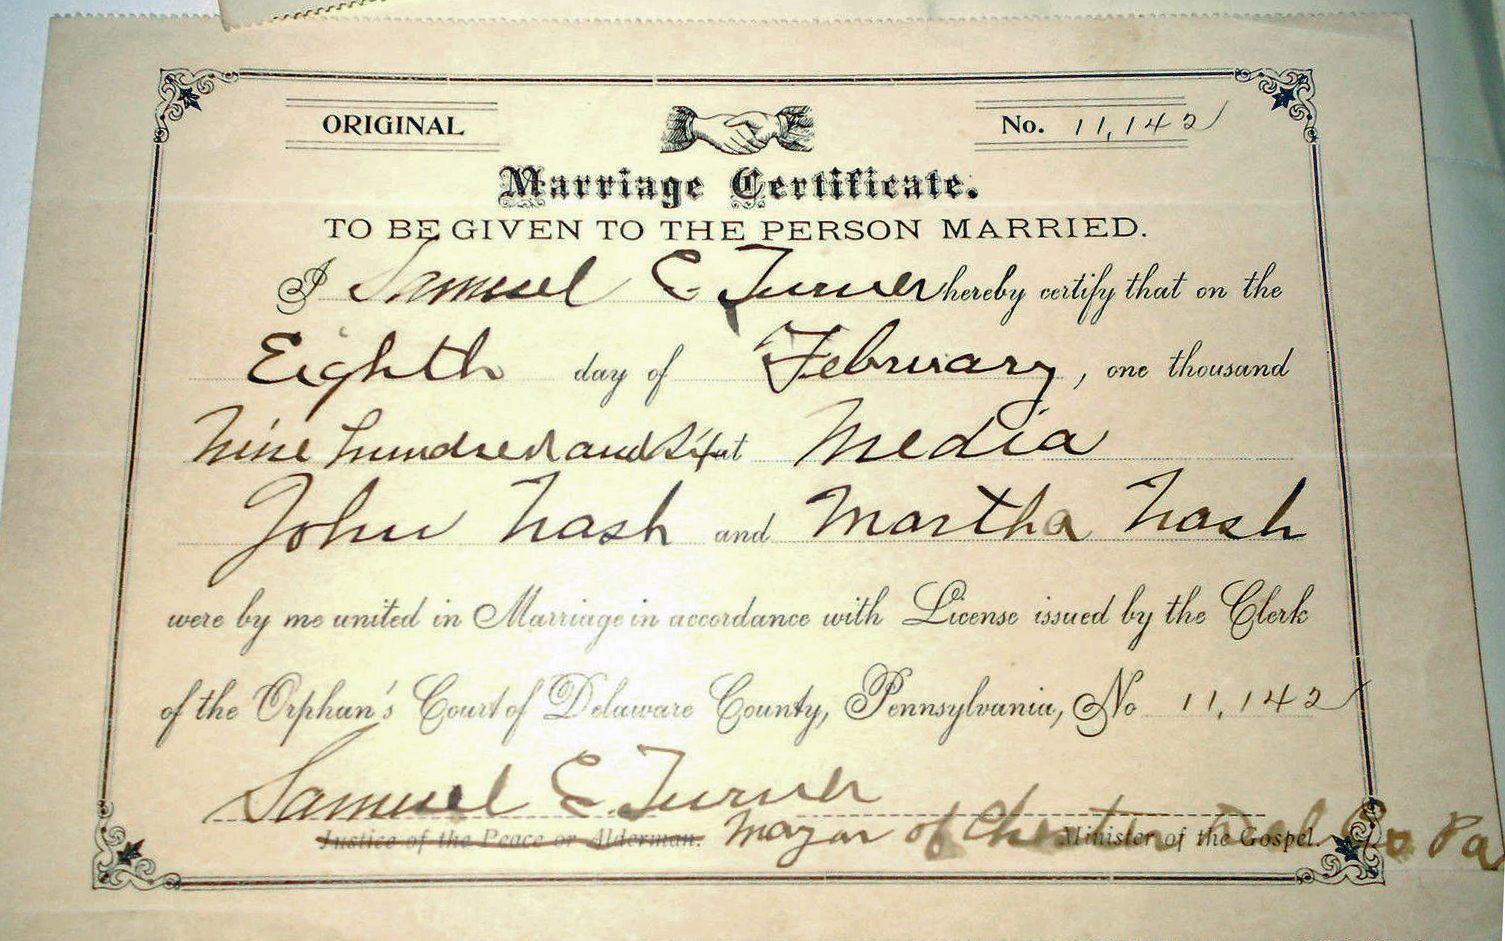 ORIGINAL
No. 11,142
Marriage Certificate.
TO BE GIVEN TO THE PERSON MARRIED.
I Samuel E. Turner hereby certify that on the
Eighth day of February, one thousand
Nine hundred and Six at Media
John Nash and Martha Nash
were by me united in Marriage in accordance with License issued by the Clerk
of the Orphan's Court of Delaware County, Pennsylvania, No 11,142
Samuel E. Turner
Justice of the Peace or Alderman. Mayor of Chester Del. Co. Pa
Minister of the Gospel.